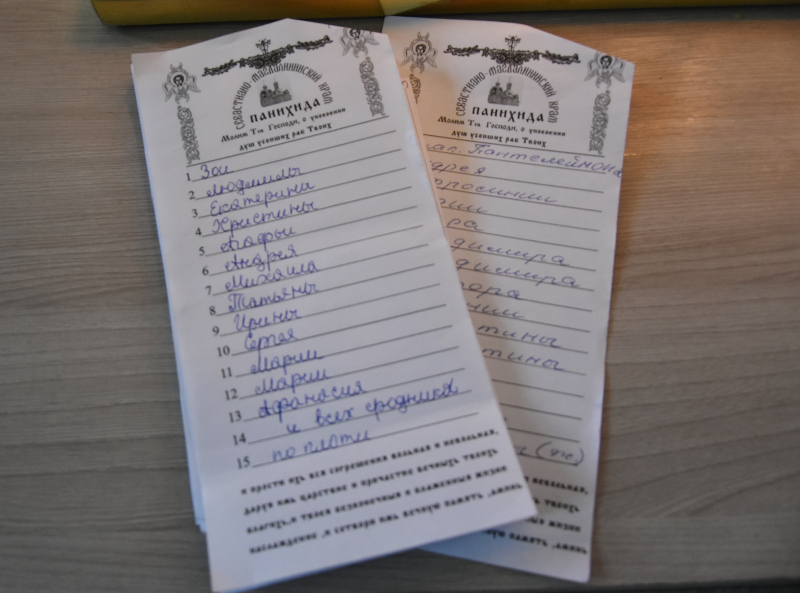 СЕВАСТИАНО-МАГДАЛИНИНСКИЙ ХРАМ
ПАНИХИДА
Молим Тя Господи, о упокоении
душ усопших раб Твоих
1 Зои
2 Людмилы
3 Екатерини
4 Христины
5 Агафьи
6 Андрея
7 Михаила
8 Татьяны
9 Ирины
10 Сергея
11 Марии
12 Марии
13 Афанасия
14 и всех сродников
15 по плоти
и прости изъ вся согрешения вольная и невольная,
даруя имъ царствие и причастие вечныхъ твоихъ
благихъ,и твоея безконечныя и блаженныя жизни
наслаждение ,и сотвори имъ вечную память ,аминь
СЕВАСТИАНО-МАГДАЛИНИНСКИЙ ХРАМ
ПАНИХИДА
Молим Тя Господи, о упокоении
душ усопших раб Твоих
Пантелеймона
димира
димира
тины
тины
невольная,
твоихъ
жизни
память ,аминь